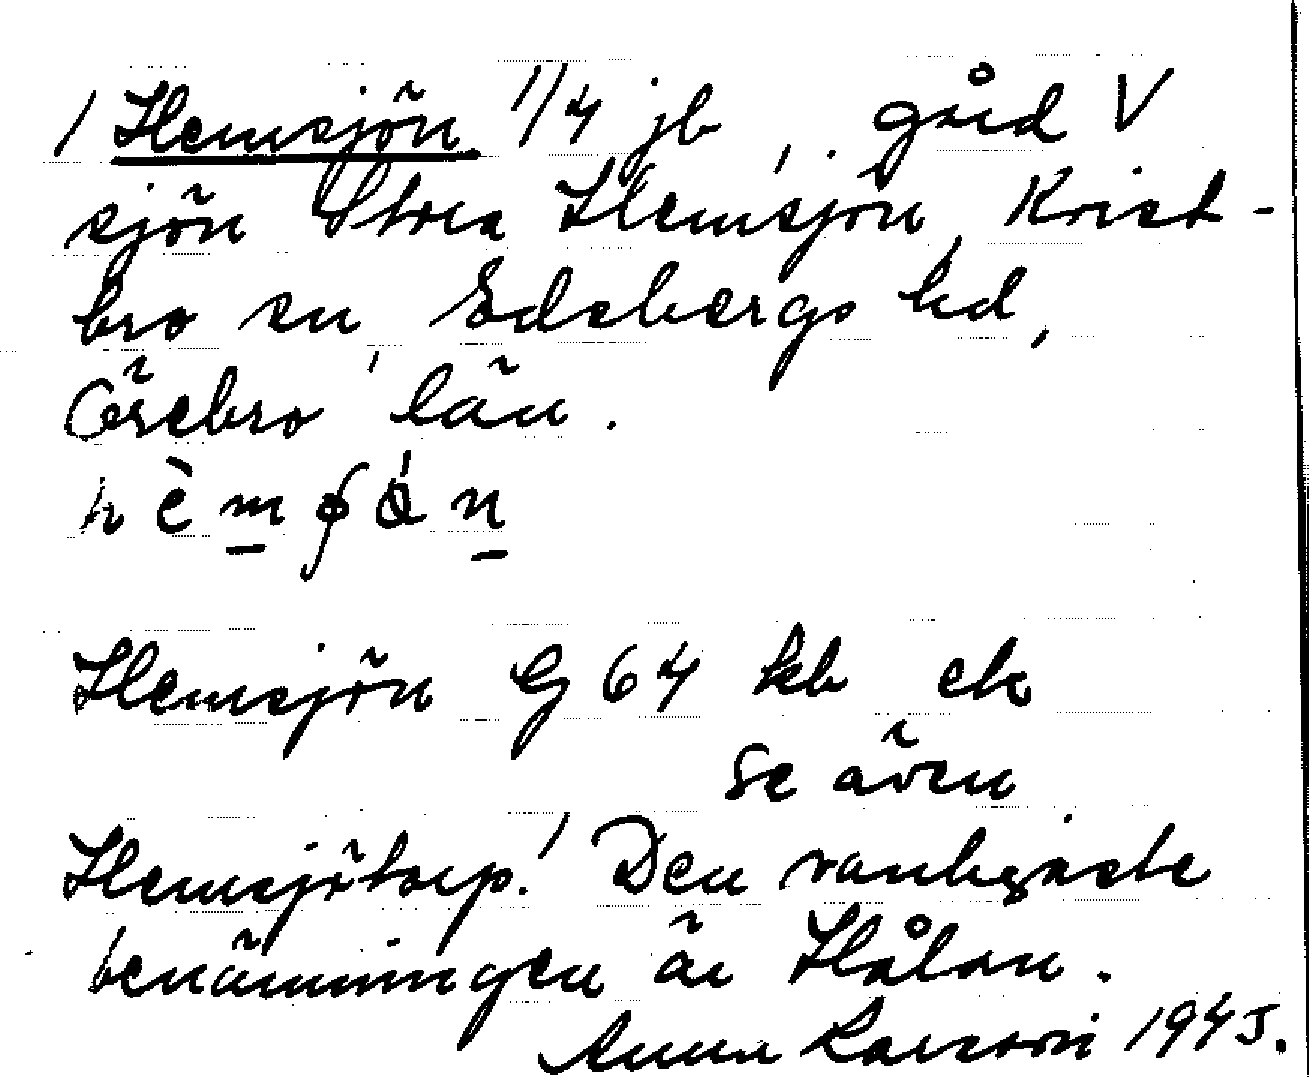 1 Hemsjön 1/4 jb, gård V
sjön Stora Hemsjön, Krist-
bro sn, Edsbergs hd,
Örebro län.

Hemsjön G 64 kb ek
se även
Hemsjötorp! Den vanligaste
benämningen är Hålan.
Anna Larsson 1945.